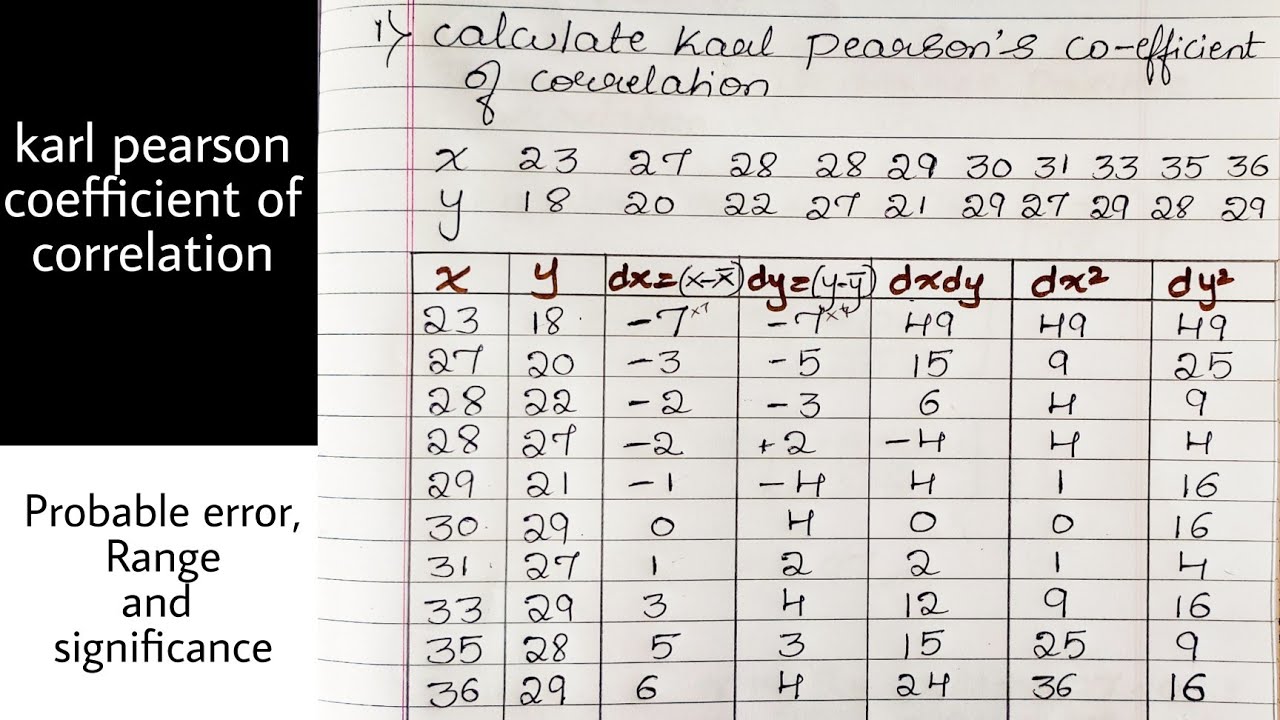 karl pearson
coefficient of
correlation
Probable error,
Range
and
significance
1) calculate Karl Pearson's co-efficient
of correlation
x 23 27 28 28 29 30 31 33 35 36
y 18 20 22 27 21 29 27 29 28 29
x y dx=(x-x̄) dy=(y-ȳ) dxdy dx² dy²
23 18 -7 -7 49 49 49
27 20 -3 -5 15 9 25
28 22 -2 -3 6 4 9
28 27 -2 +2 -4 4 4
29 21 -1 -4 4 1 16
30 29 0 4 0 0 16
31 27 1 2 2 1 4
33 29 3 4 12 9 16
35 28 5 3 15 25 9
36 29 6 4 24 36 16